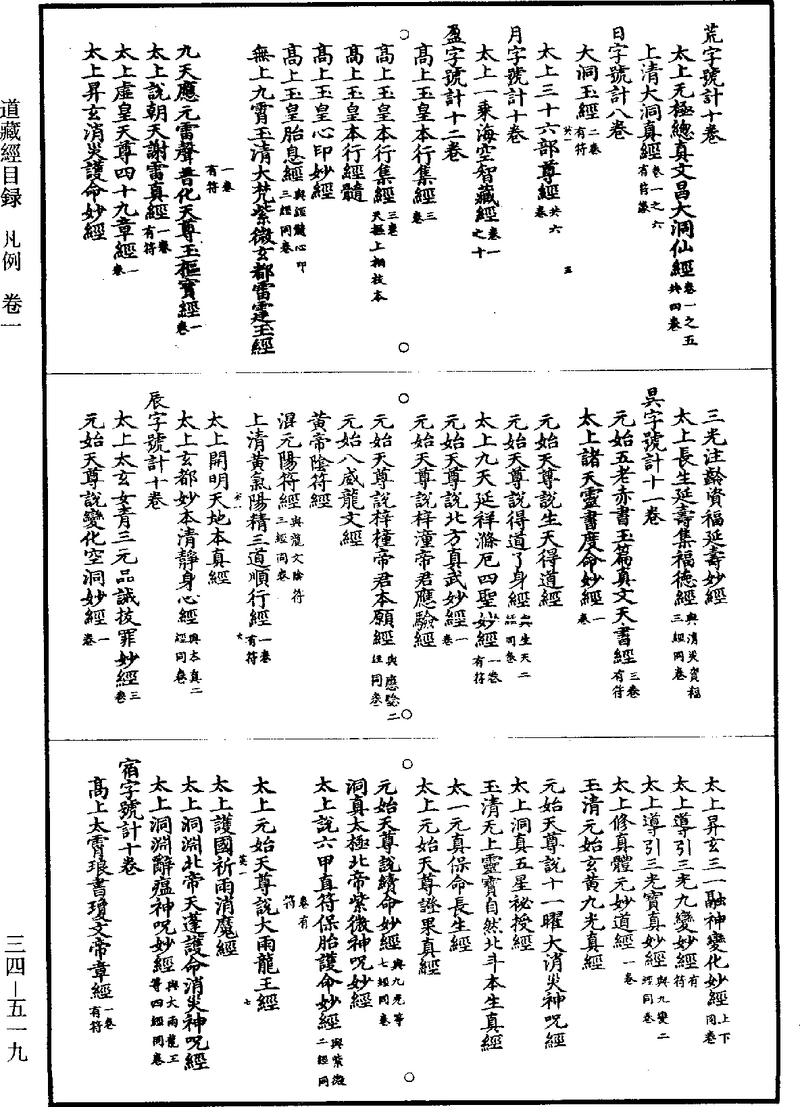 荒字號計十卷
太上元極總真文昌大洞仙經卷一之五共四卷
上清大洞真經卷一之六有符篆
日字號計八卷
大洞玉經二卷有符
太上三十六部尊經共六卷
月字號計十卷
太上一乘海空智藏經卷一之十
盈字號計十二卷
高上玉皇本行集經三卷
高上玉皇本行集經三卷天樞上相校本
高上玉皇本行經髓
高上玉皇心印妙經
高上玉皇胎息經與經髓心印三經同卷
無上九霄玉清大梵紫微玄都雷霆玉經一卷有符
九天應元雷聲普化天尊玉樞寶經一卷
太上說朝天謝雷真經一卷有符
太上虛皇天尊四十九章經一卷
太上昇玄消災護命妙經
三光注齡資福延壽妙經
太上長生延壽集福德經與消災資福三經同卷
昃字號計十一卷
元始五老赤書玉篇真文天書經三卷有符
太上諸天靈書度命妙經一卷
元始天尊說生天得道經
元始天尊說得道了身經與生天二經同卷
太上九天延祥滌厄四聖妙經一卷有符
元始天尊說北方真武妙經一卷
元始天尊說梓潼帝君應驗經
元始天尊說梓橦帝君本願經與應驗二經同卷
元始八威龍文經
黃帝陰符經
混元陽符經與龍文陰符三經同卷
上清黃氣陽精三道順行經一卷有符
太上開明天地本真經
太上玄都妙本清靜身心經與本真二經同卷
辰字號計十卷
太上太玄女青三元品誡拔罪妙經三卷
元始天尊說變化空洞妙經一卷
太上昇玄三一融神變化妙經上下同卷
太上導引三光九變妙經有符
太上導引三光寶真妙經與九變二經同卷
太上修真體元妙道經一卷
玉清元始玄黃九光真經
元始天尊說十一曜大消災神呪經
太上洞真五星祕授經
玉清无上靈寶自然北斗本生真經
太一元真保命長生經
太上元始天尊證果真經
元始天尊說續命妙經與九光等七經同卷
洞真太極北帝紫微神呪妙經
太上說六甲直符保胎護命妙經與紫微二經同卷有符
太上元始天尊說大雨龍王經
太上護國祈雨消魔經
太上洞淵北帝天蓬護命消災神呪經
太上洞淵辭瘟神呪妙經與大雨龍王等四經同卷
宿字號計十卷
高上太霄琅書瓊文帝章經一卷有符
道藏經目录 凡例 卷一
三四—五一九